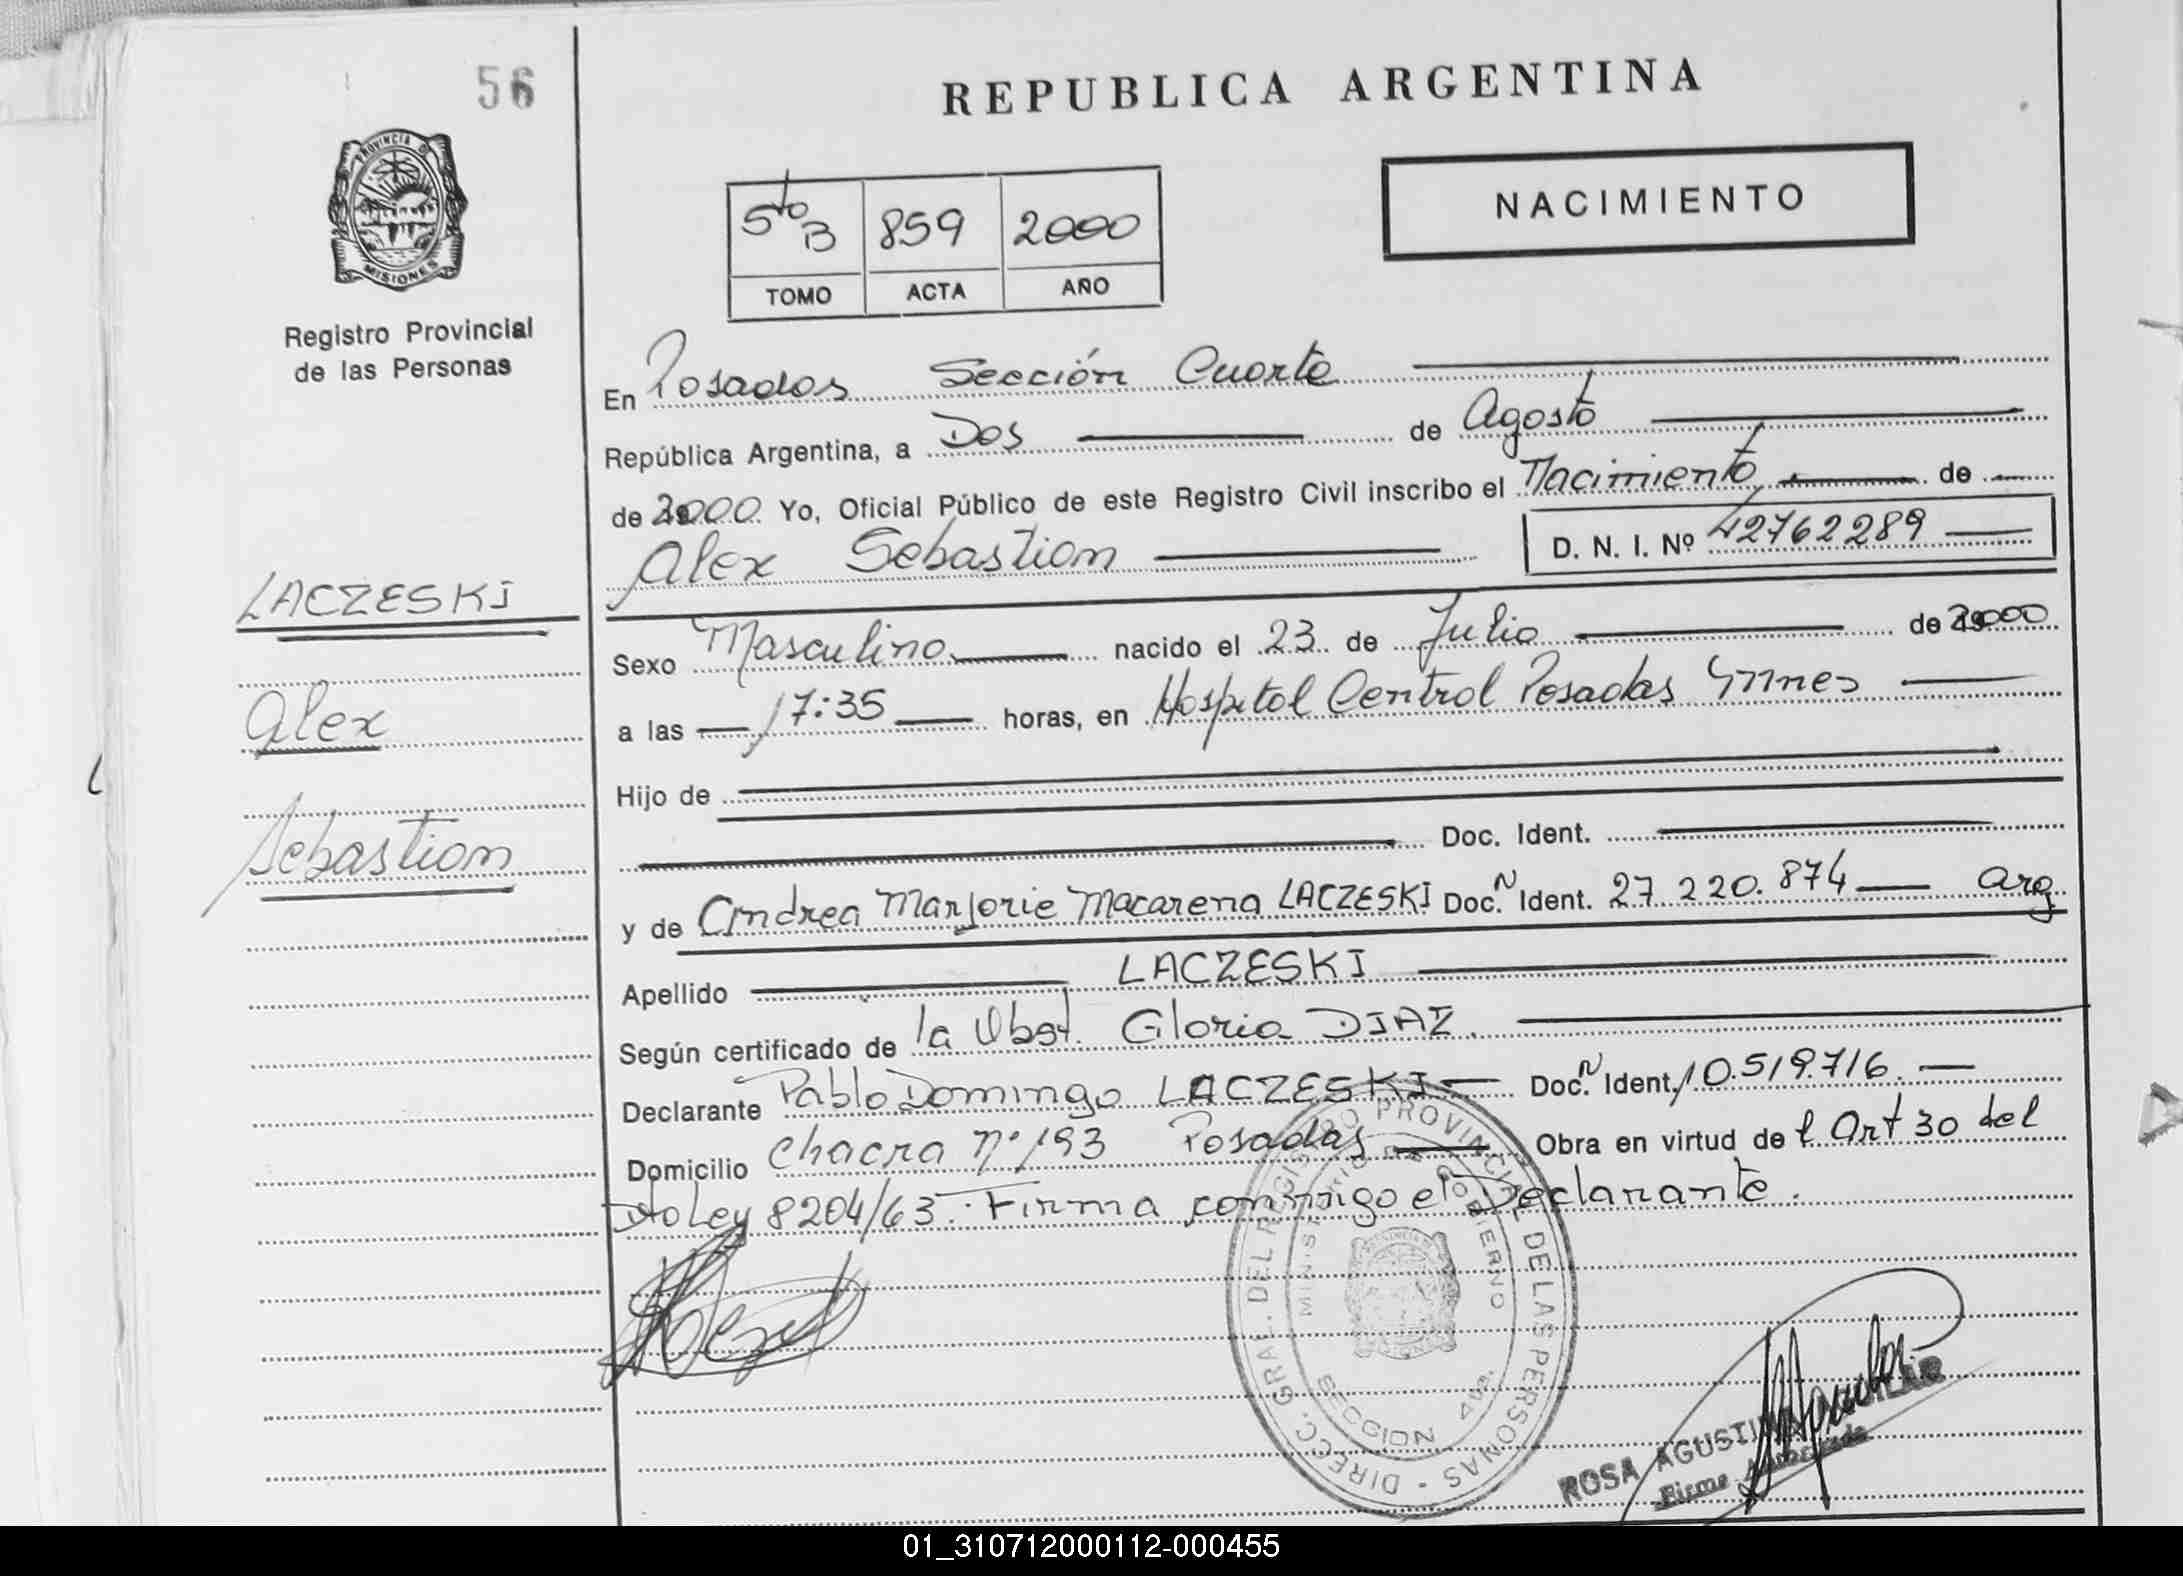 56
REPUBLICA ARGENTINA
PROVINCIA D
MISIONES
Registro Provincial
de las Personas
NACIMIENTO
5to B 859 2000
TOMO ACTA AÑO
En Posadas Sección Cuarta
República Argentina, a Dos de Agosto
de 2000 Yo, Oficial Público de este Registro Civil inscribo el Nacimiento de
Alex Sebastian D. N. I. Nº 42762289
LACZESKI
Alex
Sebastian
Sexo Masculino nacido el 23 de Julio de 2000
a las 17:35 horas, en Hospital Central Posadas Mnes
Hijo de
Doc. Ident.
y de Andrea Marjorie Macarena LACZESKI Doc. N Ident. 27.220.874 Arg.
Apellido LACZESKI
Según certificado de la Obst. Gloria DIAZ.
Declarante Pablo Domingo LACZESKI Doc. N Ident. 10.519.716.
Domicilio Chacra nº 193 Posadas Obra en virtud de l Art 30 del
Dto Ley 8204/63. Firma conmigo el Declarante.
DIRECC. GRAL. DEL REGISTRO PROVINCIAL DE LAS PERSONAS
MINISTERIO DE GOBIERNO
SECCION 4ta.
ROSA AGUSTINA AGUILAR
Firma Autorizada
01_310712000112-000455